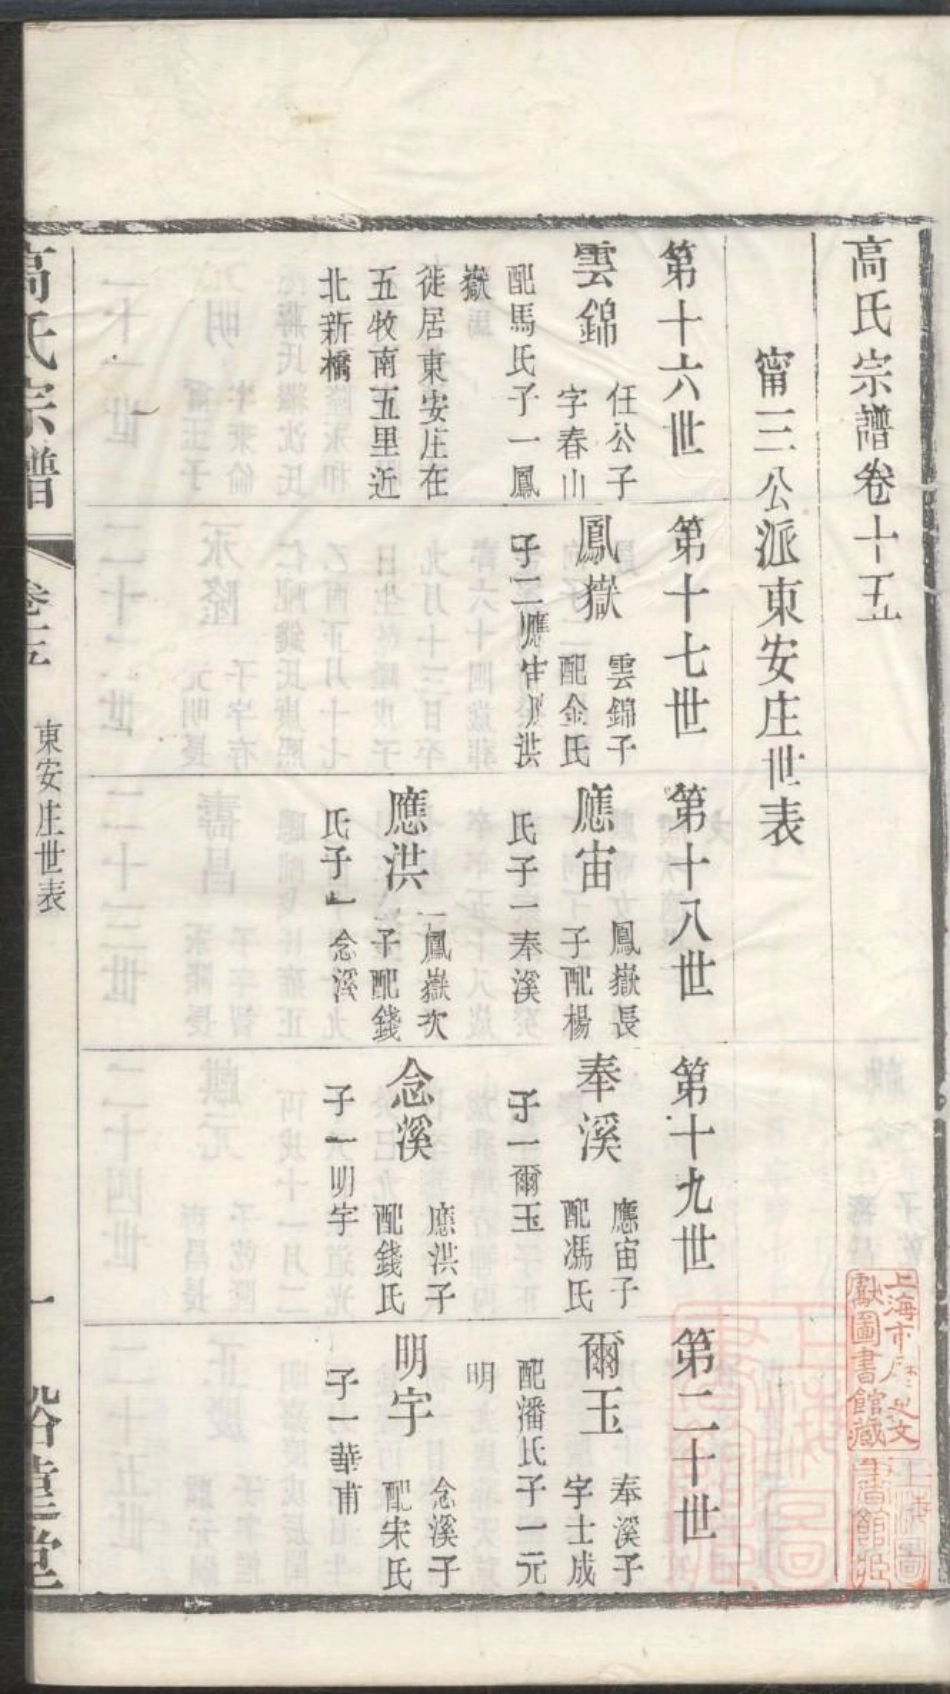 高氏宗譜卷十五
甯三公派東安庄世表
第十六世
雲錦
任公子
字春山
配馬氏子一鳳
嶽
徙居東安庄在
五牧南五里近
北新橋
第十七世
鳳嶽
雲錦子
配金氏
子二應宙應洪
第十八世
應宙
鳳嶽長
子配楊
氏子一奉溪
應洪
鳳嶽次
子配錢
氏子一念溪
第十九世
奉溪
應宙子
配馮氏
子一爾玉
念溪
應洪子
配錢氏
子一明宇
第二十世
爾玉
奉溪子
字士成
配潘氏子一元
明
明宇
念溪子
配宋氏
子一華甫
高氏宗譜
卷十五
東安庄世表
一
裕堂
上海市歷史文
獻圖書館藏